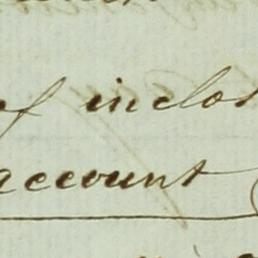 inclos
account